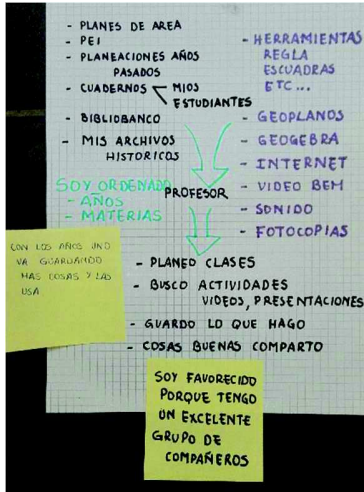 - PLANES DE AREA
- PEI
- PLANEACIONES AÑOS
PASADOS
- CUADERNOS < MIOS
ESTUDIANTES
- BIBLIOBANCO
- MIS ARCHIVOS
HISTORICOS
- HERRAMIENTAS
REGLA
ESCUADRAS
ETC...
- GEOPLANOS
- GEOGEBRA
- INTERNET
- VIDEO BEM
- SONIDO
- FOTOCOPIAS
SOY ORDENADO
- AÑOS
- MATERIAS
PROFESOR
CON LOS AÑOS UNO
VA GUARDANDO
MAS COSAS Y LAS
USA
- PLANEO CLASES
- BUSCO ACTIVIDADES
VIDEOS, PRESENTACIONES
- GUARDO LO QUE HAGO
- COSAS BUENAS COMPARTO
SOY FAVORECIDO
PORQUE TENGO
UN EXCELENTE
GRUPO DE
COMPAÑEROS